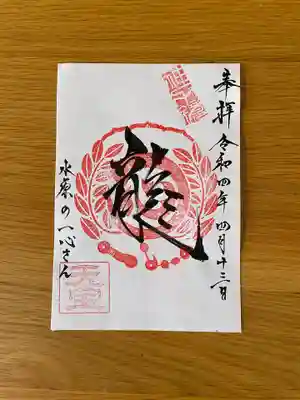 奉拝 令和四年四月十三日
龍
水原の一心さん
天宝